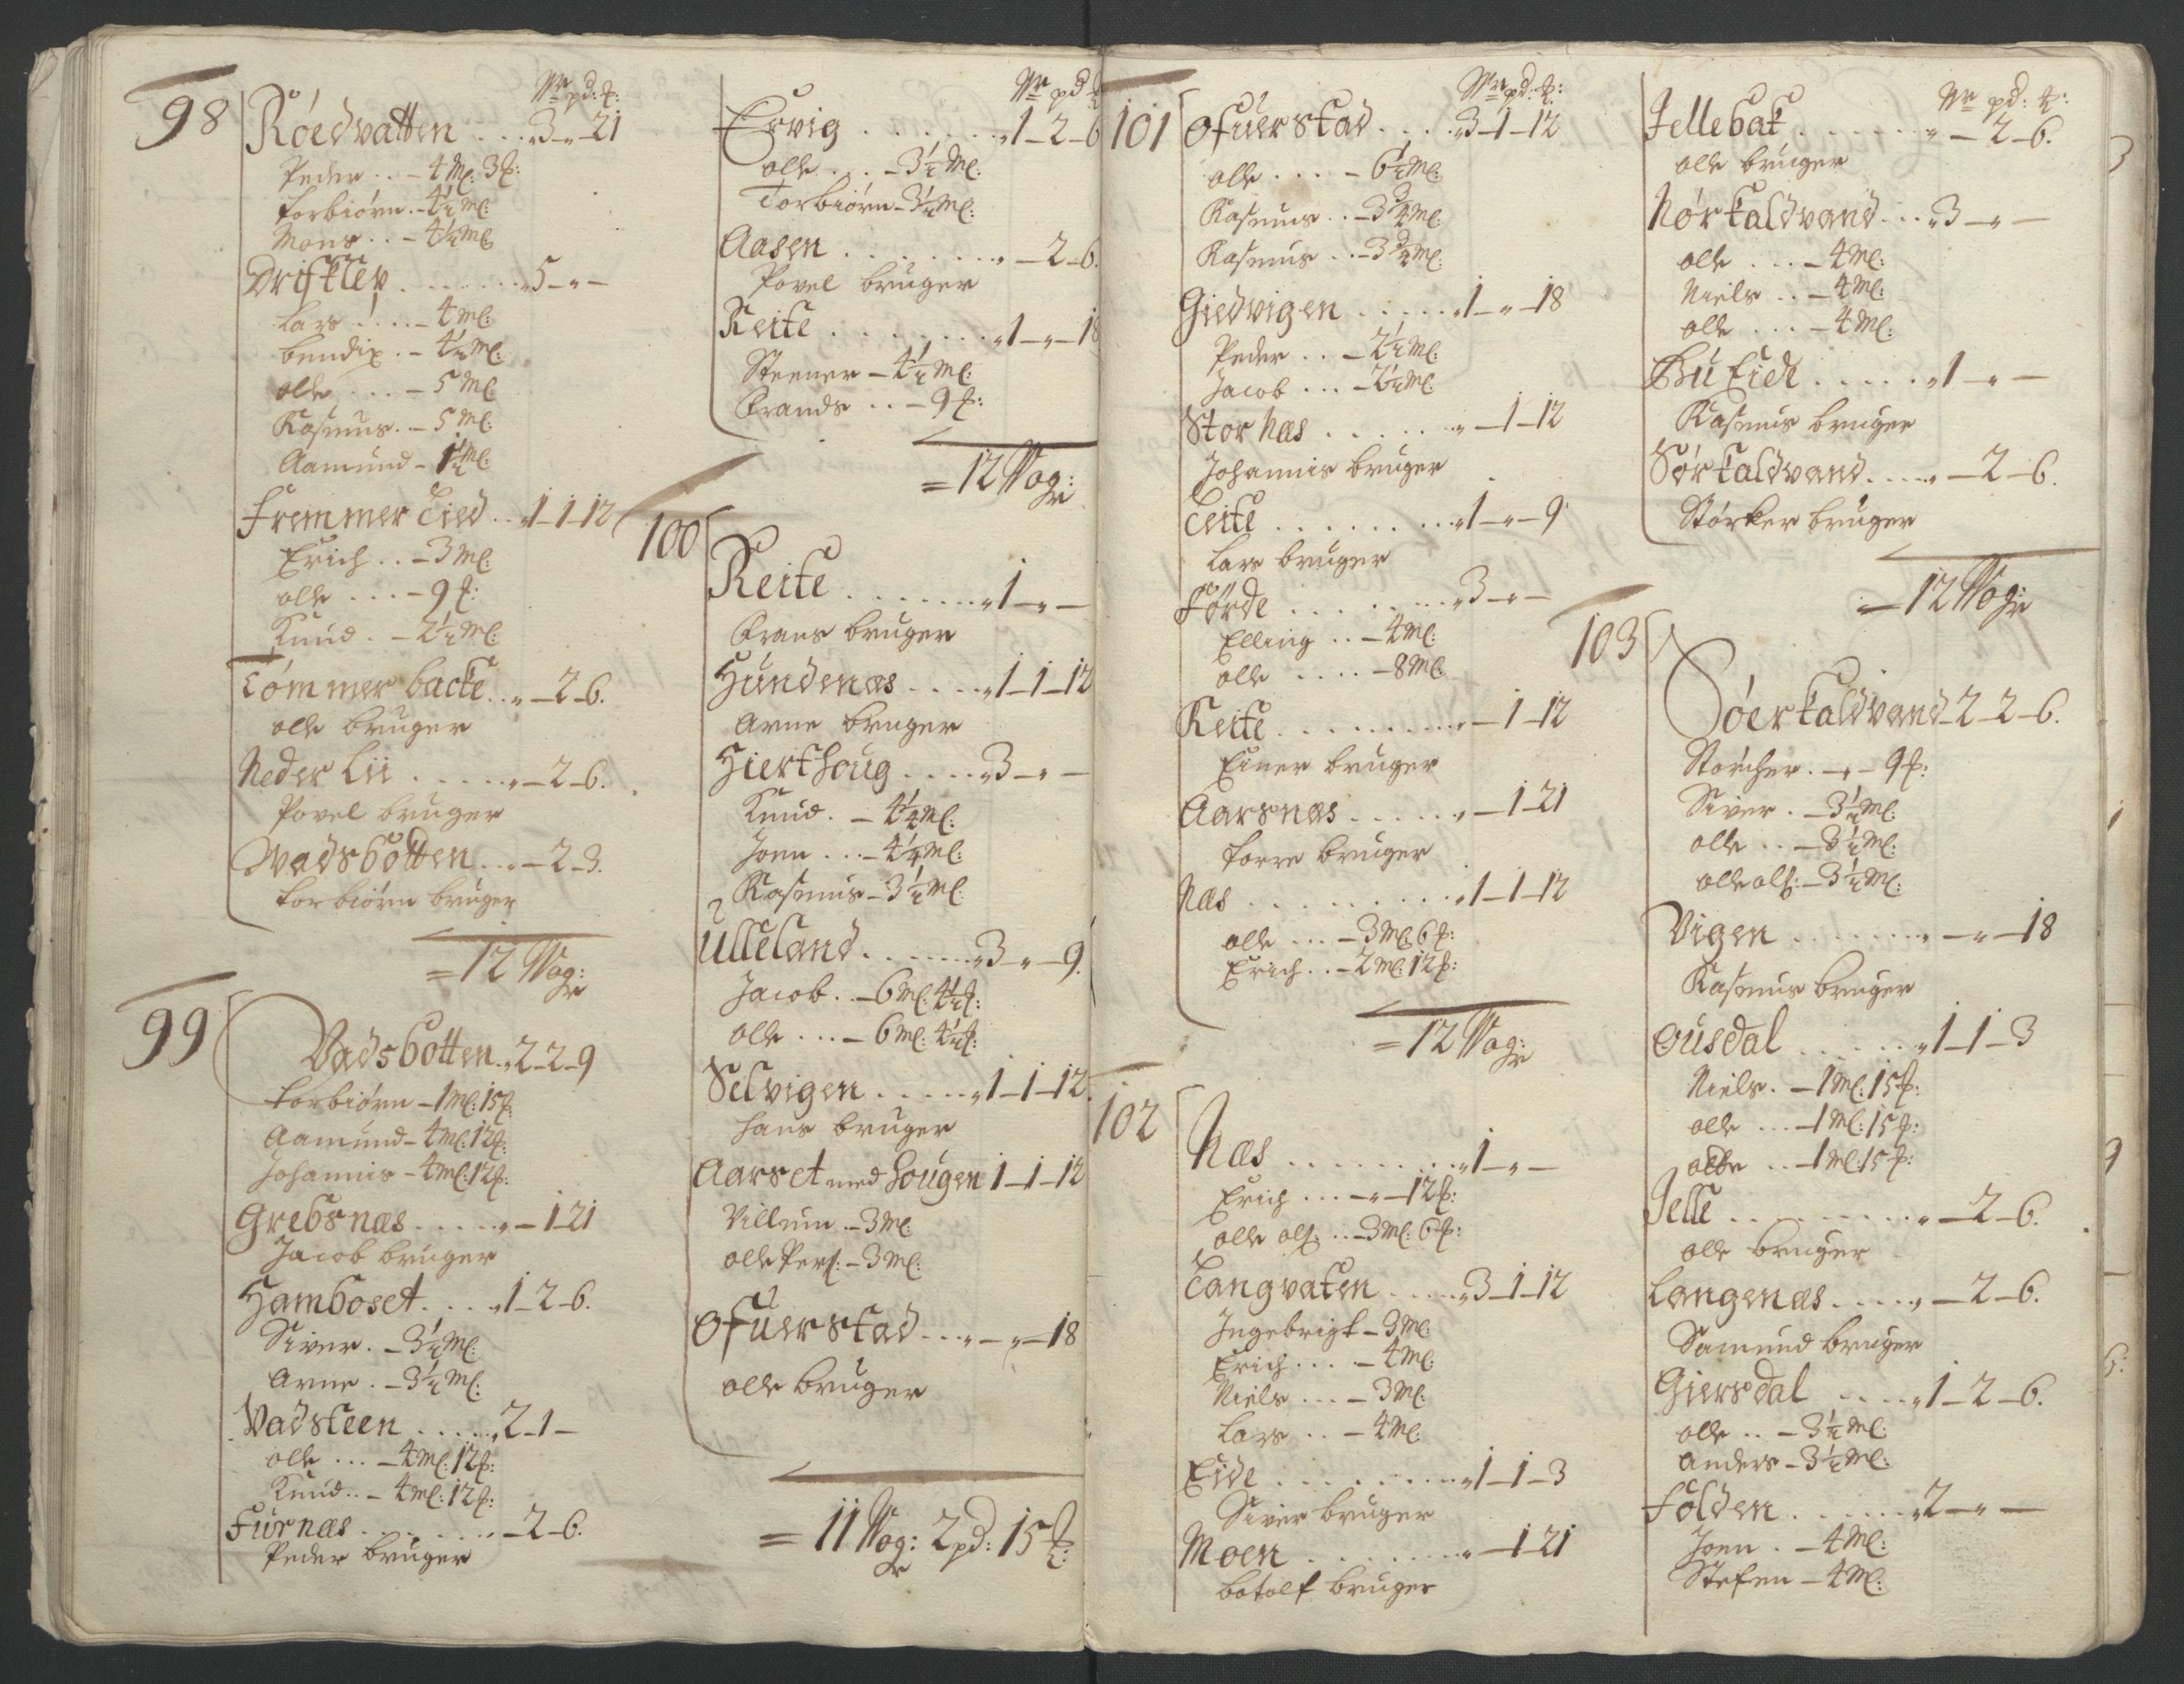 Wr pd: ℔:
98 Röedvatten . . . 3 - „ - 21
Peder . . - 4 Ml: 3 ℔:
Torbiörn . - 4½ Ml:
Mons . . - 4½ Ml:
Drifkleÿ . . . . . 5 - „ -
Lars . . . . - 4 Ml:
bendix . - 4½ Ml:
olle . . . - 5 Ml:
Rasmus . - 5 Ml:
Aamund - 1½ Ml:
Fremmer Eied . . 1 - 1 - 12
Erich . . - 3 Ml:
olle . . . - 9 ℔:
Knud . - 2½ Ml:
Tömmer backe . . „ - 2 - 6.
olle bruger
Neder Lii . . . . . „ - 2 - 6.
Povel bruger
Wadsbotten . . „ - 2 - 3.
Torbiörn bruger
= 12 Wog:
99 Vadsbotten . 2 - 2 - 9
Torbiörn - 1 Ml: 15 ℔:
Aamund - 4 Ml: 12 ℔:
Johannis - 4 Ml: 12 ℔:
Grebsnæs . . . . . „ - 1 - 21
Jacob bruger
Hamboset . . . . 1 - 2 - 6.
Siver . - 3½ Ml:
Arne . - 3½ Ml:
Vadsteen . . . . . 2 - 1 -
olle . . . - 4 Ml: 12 ℔:
Knud . . - 4 Ml: 12 ℔:
Furnæs . . . . . . . - 2 - 6.
Peder bruger
Wr pd
Ervig . . . . . . . 1 - 2 - 6
olle . . . - 3½ Ml:
Torbiörn - 3½ Ml:
Aasen . . . . . . . . „ - 2 - 6.
Povel bruger
Reite . . . . . . . . 1 - „ - 18
Steener - 4½ Ml:
Frands . . - 9 ℔:
= 12 Wog:
100 Reite . . . . . . . 1 - „ -
Frans bruger
Hundenæs . . . . 1 - 1 - 12
Arne bruger
Hierthoug . . . . 3 - „ -
Knud . - 4¼ Ml:
Joen . . . - 4¼ Ml:
Rasmus - 3½ Ml:
Ulleland . . . . . . 3 - „ - 9.
Jacob . . - 6 Ml: 4½ ℔:
olle . . . - 6 Ml: 4½ ℔:
Selvigen . . . . . 1 - 1 - 12
Hans bruger
Aarset med Hougen 1 - 1 - 12
Villum . - 3 Ml:
olle Pers: - 3 Ml:
Ofuerstad . . . „ - „ - 18
olle bruger
= 11 Wog: 2 pd: 15 ℔:
Wr pd: ℔:
101 Ofuerstad . . . . 3 - 1 - 12
olle . . . . - 6½ Ml:
Rasmus . . - 3¾ Ml:
Rasmus . . - 3¾ Ml:
Giedvigen . . . . . 1 - „ - 18
Peder . . - 2½ Ml:
Jacob . . . - 2½ Ml:
Stor Næs . . . . . . „ - 1 - 12
Johannis bruger
Teite . . . . . . . . 1 - „ - 9
Lars bruger
Förde . . . . . . . . 3 - „ -
Elling . . - 4 Ml:
olle . . . . - 8 Ml:
Reite . . . . . . . . „ - 1 - 12
Einer bruger
Aarsnæs . . . . . „ - 1 - 21
Torre bruger
Næs . . . . . . . . . 1 - 1 - 12
olle . . . - 3 Ml: 6 ℔:
Erich . . - 2 Ml: 12 ℔:
= 12 Wog:
102 Næs . . . . . . . . 1 - „ -
Erich . . . - „ - 12 ℔:
olle ols: . . - 3 Ml: 6 ℔:
Langvaten . . . . . 3 - 1 - 12
Ingebrigt - 3 Ml:
Erich . . . . - 4 Ml:
Niels . . . - 3 Ml:
Lars . . - 4 Ml:
Eide . . . . . . . . 1 - 1 - 3
Siver bruger
Moen . . . . . . . „ - 1 - 21
botolf bruger
Wr pd: ℔:
Jellebak . . . . . . „ - 2 - 6.
olle bruger
Nör Kaldvand . . . 3 - „ -
olle . . . - 4 Ml:
Niels . . - 4 Ml:
olle . . . - 4 Ml:
Bu Eide . . . . . 1 - „ -
Rasmus bruger
Sör Kaldvand . . . . „ - 2 - 6.
Störker bruger
= 12 Wog:
103 Söer Kaldvand 2 - 2 - 6.
Störcher . - „ - 9 ℔:
Siver . - 3½ Ml:
olle . . - 3½ Ml:
olle ols: - 3½ Ml:
Vigen . . . . . . . „ - „ - 18
Rasmus bruger
Ousdal . . . . . . 1 - 1 - 3
Niels . - 1 Ml: 15 ℔:
olle . . . - 1 Ml: 15 ℔:
olle . . - 1 Ml: 15 ℔:
Jelle . . . . . . . . „ - 2 - 6.
olle bruger
Langenæs . . . . . „ - 2 - 6.
Samund bruger
Giersdal . . . . . 1 - 2 - 6.
olle . . - 3½ Ml:
Anders - 3½ Ml:
Folden . . . . . . . 2 - „ -
Joen . - 4 Ml:
Stefen - 4 Ml: